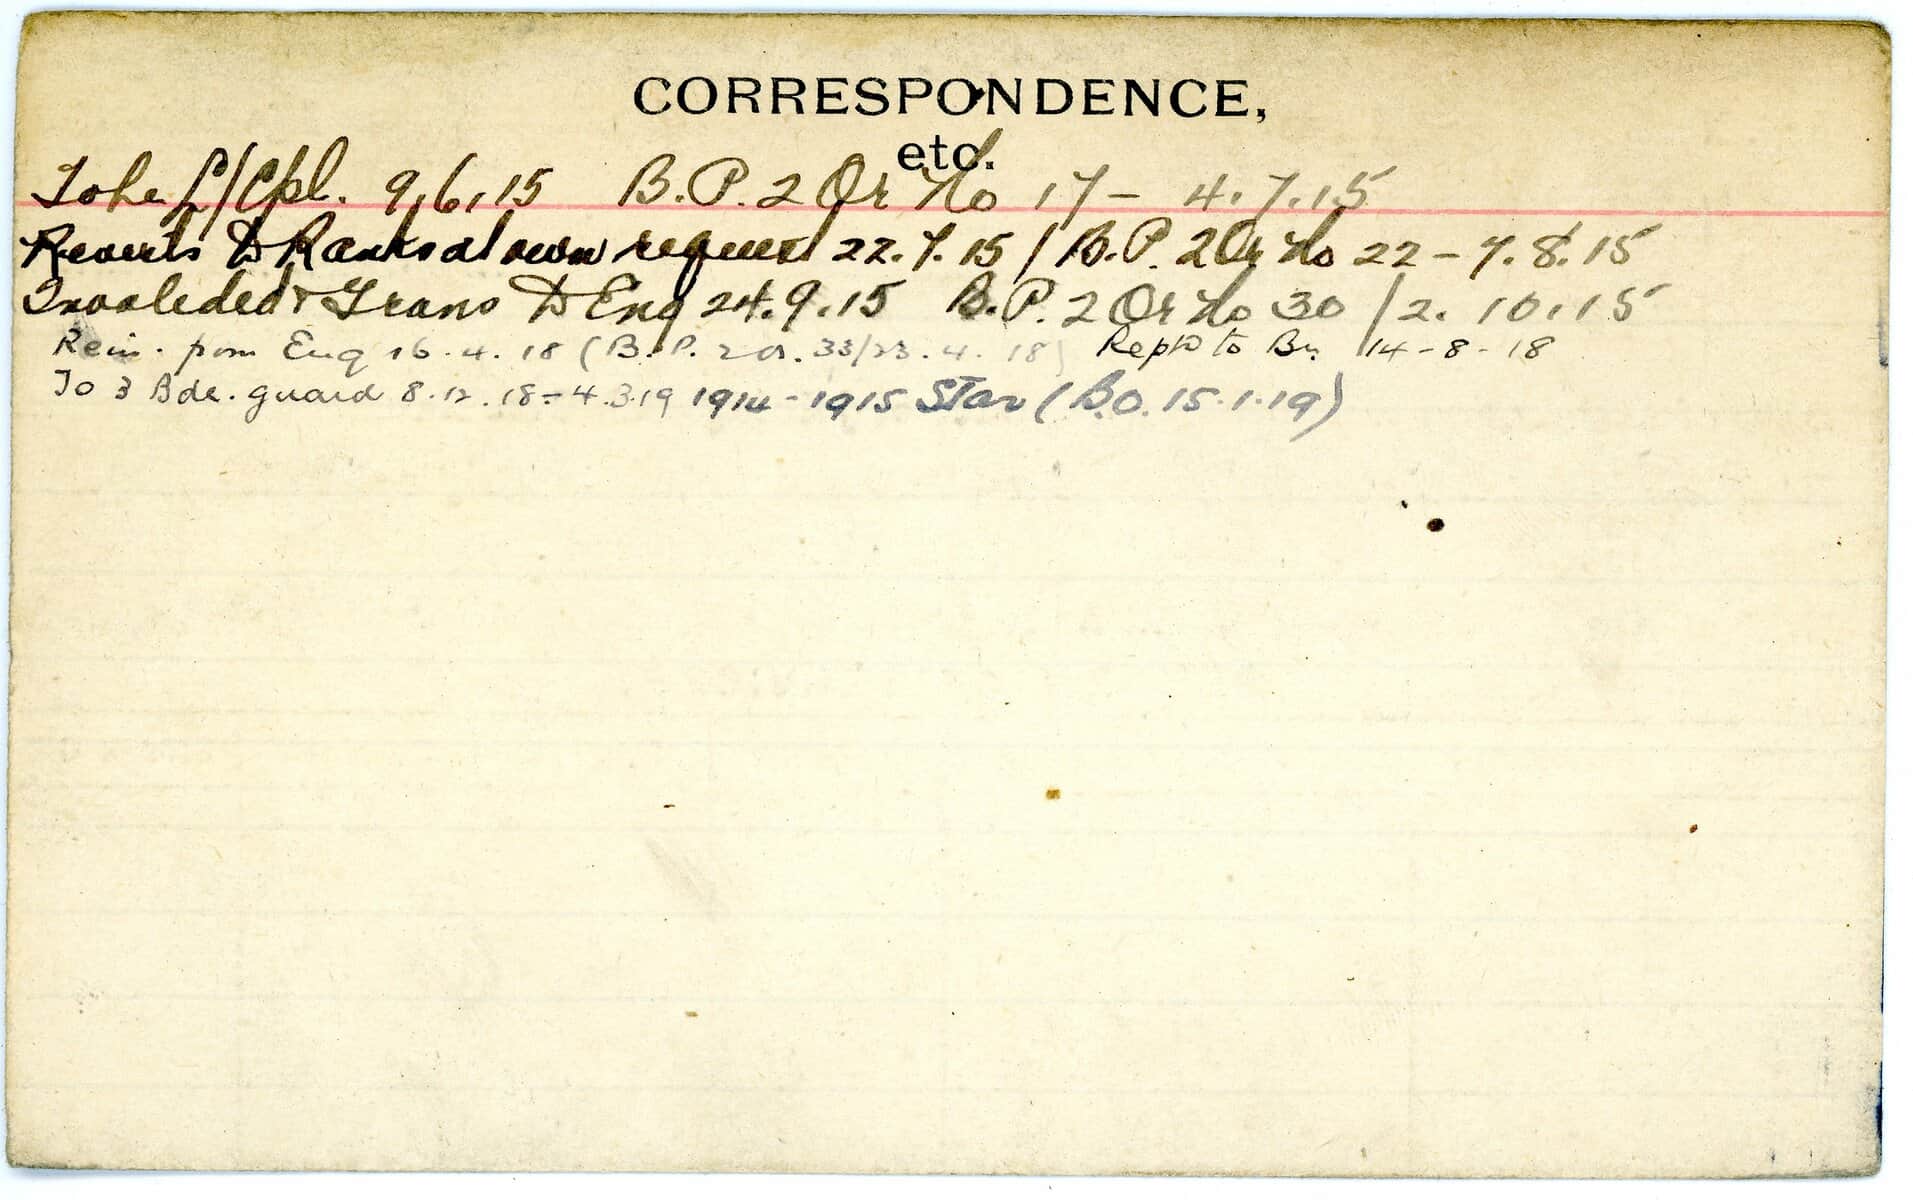 CORRESPONDENCE,
etc.
To be L/Cpl. 9,6,15 B.P. 2 Or No 17 - 4.7.15
Reverts to Ranks at own request 22.7.15 / B.P. 2 Or No 22 - 7.8.15
Invalided & Trans to Eng 24.9.15 B.P. 2 Or No 30 / 2.10.15
Rein. from Eng 16.4.18 (B.P. 2 or. 33/23.4.18) Rept'd to Bn. 14-8-18
To 3 Bde. guard 8.12.18 - 4.3.19 1914-1915 Star (B.O. 15.1.19)